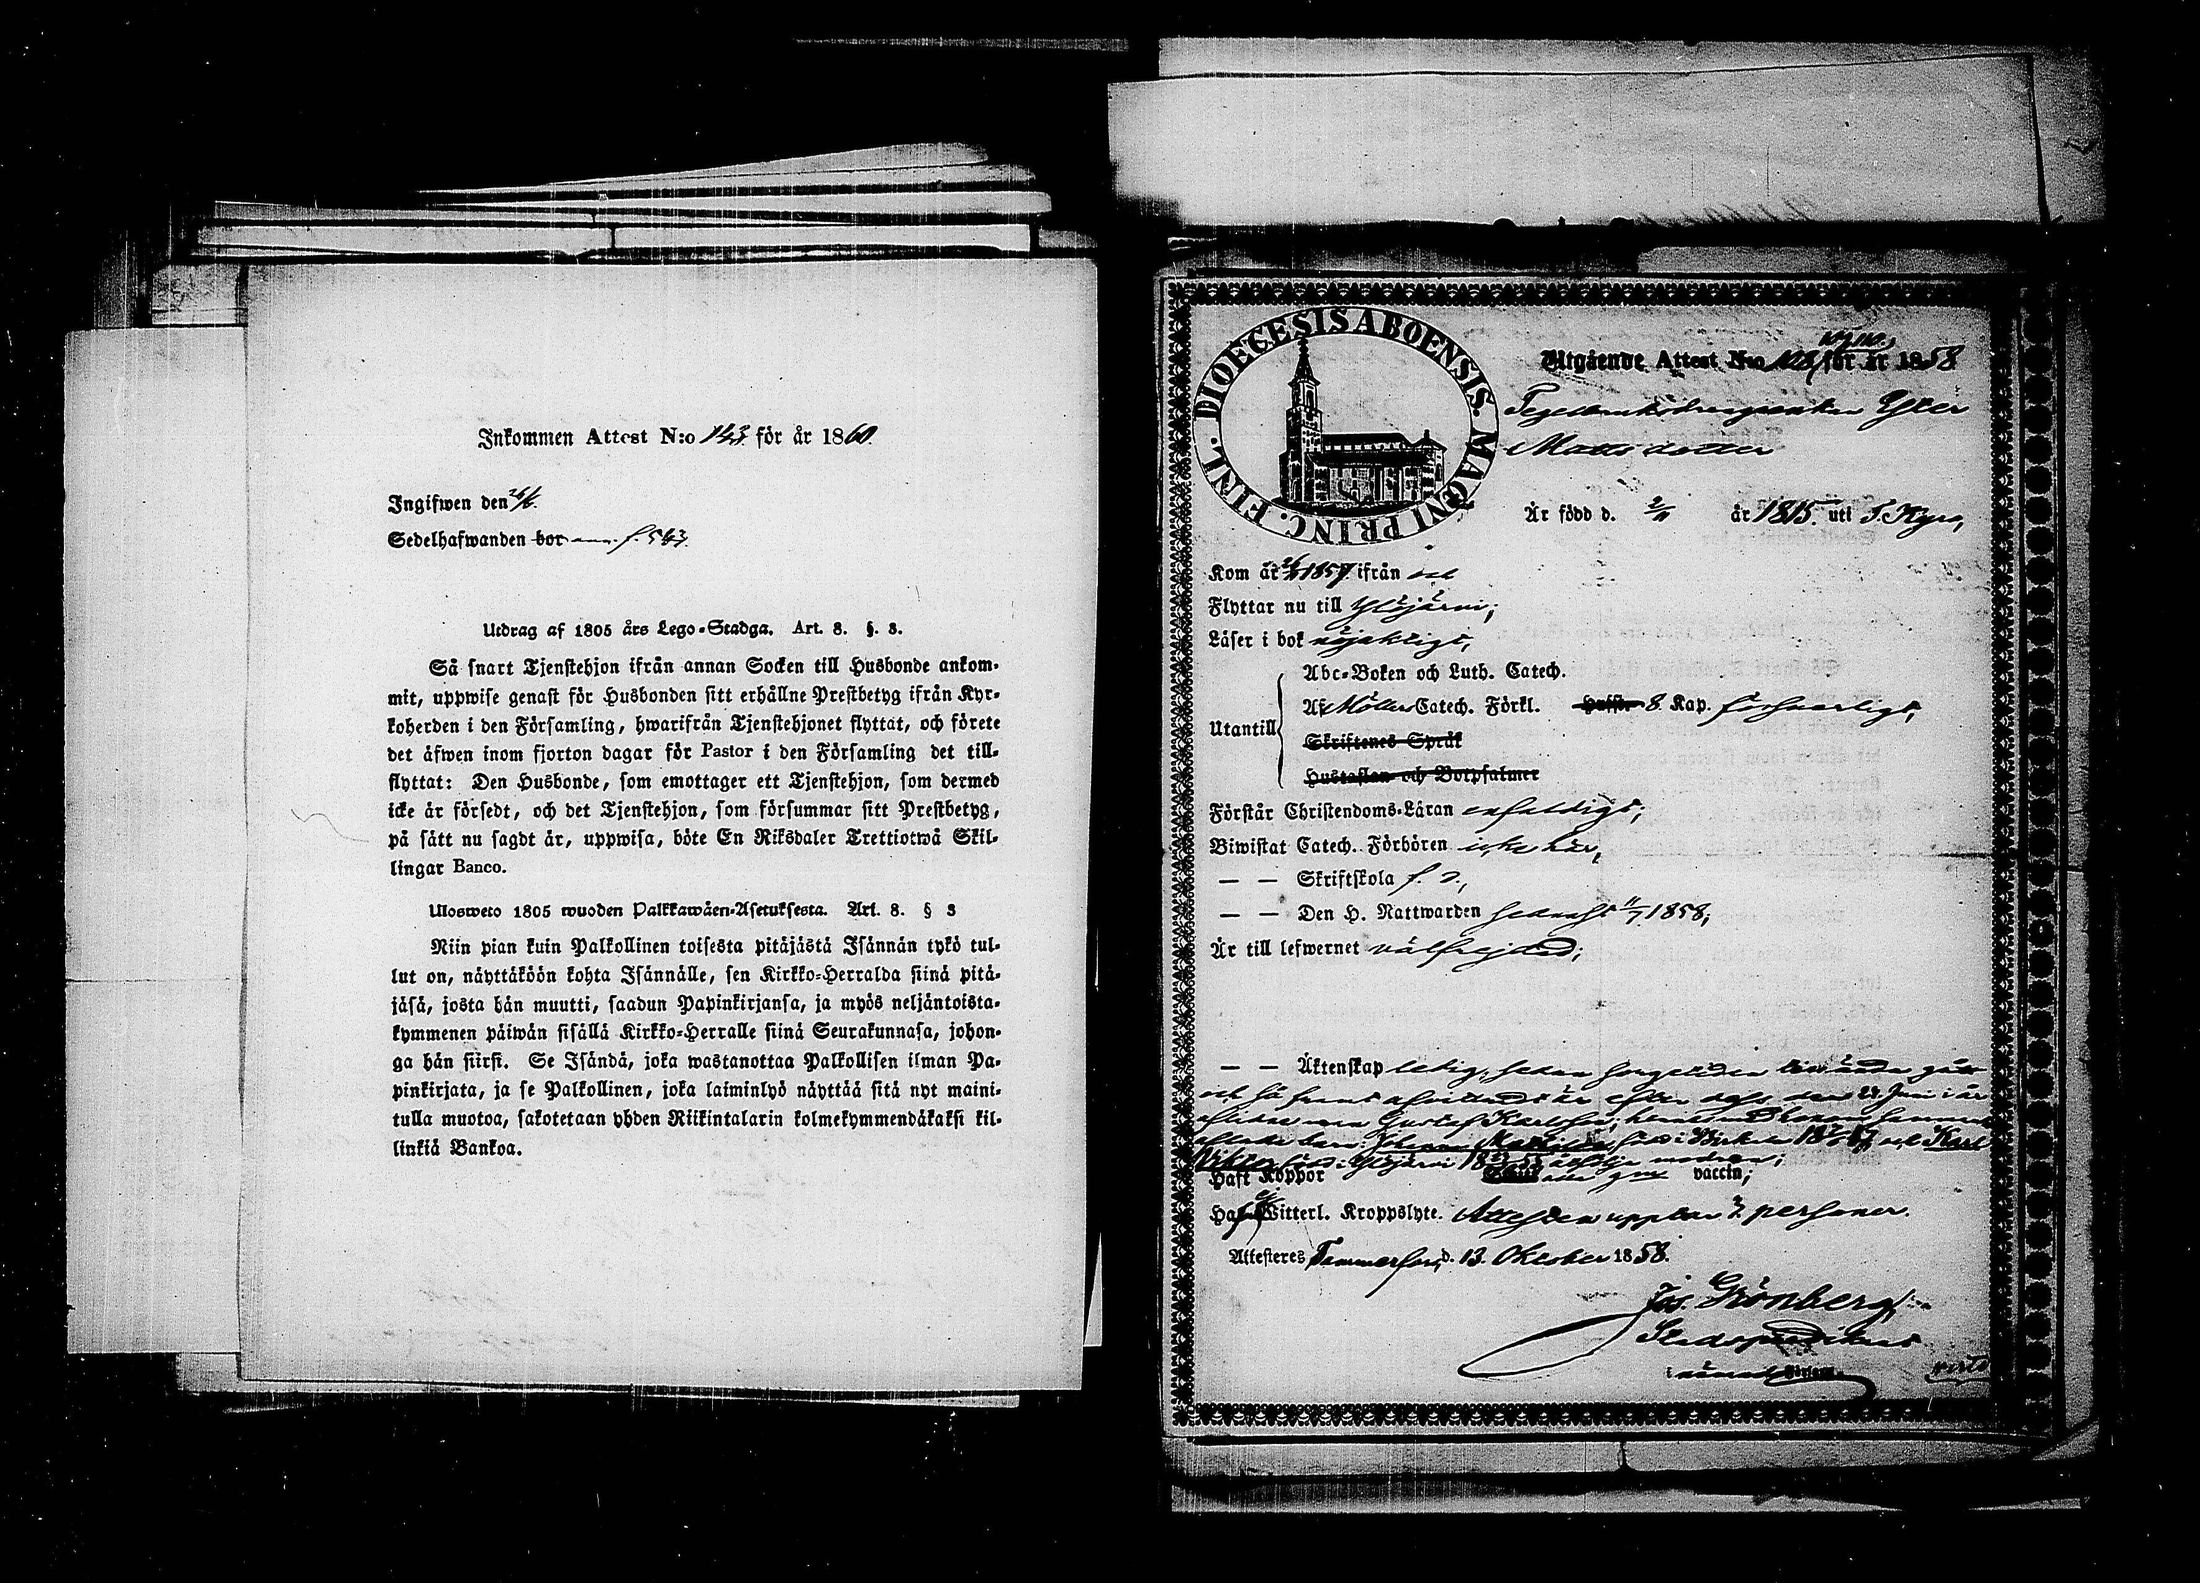 Inkommen Attest N:o 143 för år 1860.
Ingifwen den 26/6.
Sedelhafwanden bor f. 563.
Utdrag af 1805 års Lego-Stadga. Art. 8. §. 3.
Så snart Tjenstehjon ifrån annan Socken till Husbonde ankom-
mit, uppwise genast för Husbonden sitt erhållne Prestbetyg ifrån Kyr-
koherden i den Församling, hwarifrån Tjenstehjonet flyttat, och förete
det äfwen inom fjorton dagar för Pastor i den Församling det till-
flyttat: Den Husbonde, som emottager ett Tjenstehjon, som dermed
icke är försedt, och det Tjenstehjon, som försummar sitt Prestbetyg,
på sätt nu sagdt är, uppwisa, böte En Riksdaler Trettiotwå Skil-
lingar Banco.
Ulosweto 1805 wuoden Palkkawäen-Asetuksesta. Art. 8. § 3
Niin pian kuin Palkollinen toisesta pitäjästä Isännän tykö tul-
lut on, näyttäköön kohta Isännälle, sen Kirkko-Herralda siinä pitä-
jäsä, josta hän muutti, saadun Papinkirjansa, ja myös neljäntoista-
kymmenen päiwän sisällä Kirkko-Herralle siinä Seurakunnasa, johon-
ga hän siirsi. Se Isändä, joka wastanottaa Palkollisen ilman Pa-
pinkirjata, ja se Palkollinen, joka laiminlyö näyttää sitä nyt maini-
tulla muotoa, sakotetaan yhden Riikintalarin kolmekymmendäkaksi kil-
linkiä Bankoa.
DIOECESIS ABOENSIS. MAGNI PRINC. FINL.
Utgående Attest N:o för år 1858
Mattsdotter
Är född d. 2/11 år 1815. uti T. Kyro,
Kom år 1857 ifrån
Flyttar nu till Ylöjärvi;
Läser i bok nöjaktigt,
Utantill
Abc-Boken och Luth. Catech.
Af Möllers Catech. Förkl. 8. Kap. försvarligt,
Skriftenes Språk
Hustaflan och Botpsalmer
Förstår Christendoms-Läran enfaldigt;
Biwistat Catech. Förhören icke här,
— — Skriftskola
— — Den H. Nattwarden senast 11/7 1858;
Är till lefwernet välfrejdad;
— — Äktenskap ledig,
Gustaf Karlsson,
barn Johanna och Karl
Viktor Ylöjärvi modren;
Haft Koppor vaccin;
Witterl. Kroppslyte. Attesten upptar 3 personer.
Attesteres Tammerfors, d. 13. Oktober 1858.
Jos. Grönberg